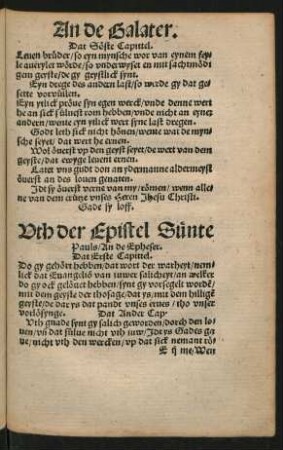 An de Galater.
Dat Söste Capittel.
Leuen brüder/so eyn mynsche wor van eynem feyle
auerylet wörde/so vnderwyset en mit sachtmödi
gem geyste/de gy geystlick synt.
Eyn drege des andern last/so werde gy dat gesette
voruüllen.
Eyn yslick pröue syn egen werck/vnde denne wert
he an sick süluest rom hebben/vnde nicht an eynem
andern/wente eyn yslick wert syne last dregen.
Godt leth sick nicht hönen/wente wat de mynsche
seyet/dat wert he ernen.
Wol öuerst vp den geyst seyet/de wert van dem
geyste/dat ewyge leuent ernen.
Latet vns gudt don an ydermanne aldermeyst
öuerst an des louen genaten.
Idt sy öuerst verne van my/römen/wenn allene
van dem crütze vnses Heren Jhesu Christi.
Gade sy loff.
Vth der Epistel Sünte
Pauls/An de Epheser.
Dat Erste Capittel.
Do gy gehört hebben/dat wort der warheyt/nemlick
dat Euangelion van iuwer salicheyt/an welker
do gy ock gelöuet hebben/synt gy vorsegelt wordē/
mit dem geyste der thosage/dat ys/mit dem hilligē
geyste/de dar ys dat pandt vnses erues/tho vnser
vorlösynge. Dat Ander Cap.
Vth gnade synt gy salich geworden/dorch den louen/
vñ dat sülue nicht vth iuw/Idt ys Gades gaue/
nicht vth den wercken/vp dat sick nemant rö-
E ij me/Wen